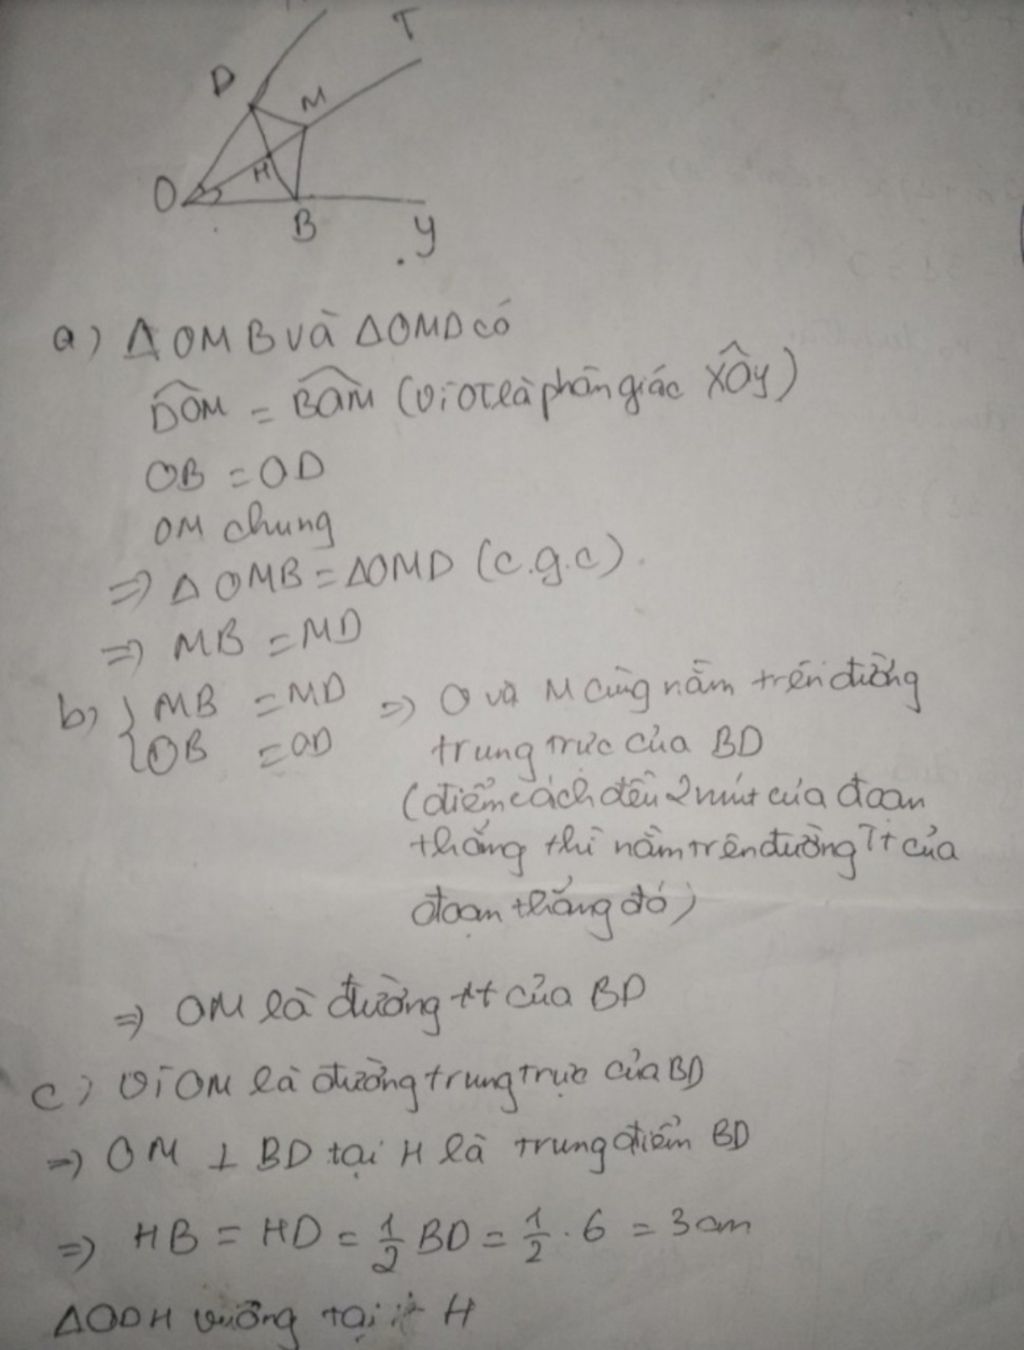 T
D
M
H
O
B
y
a) ΔOMB và ΔOMD có
DOM = BOM (vì OT là phân giác xOy)
OB = OD
OM chung
=> ΔOMB = ΔOMD (c.g.c).
=> MB = MD
b) { MB = MD => O và M cùng nằm trên đường
OB = OD trung trực của BD
(điểm cách đều 2 mút của đoạn
thẳng thì nằm trên đường Tt của
đoạn thẳng đó)
=> OM là đường tt của BD
c) vì OM là đường trung trực của BD
=> OM ⊥ BD tại H là trung điểm BD
=> HB = HD = 1/2 BD = 1/2 . 6 = 3 cm
ΔODH vuông tại H